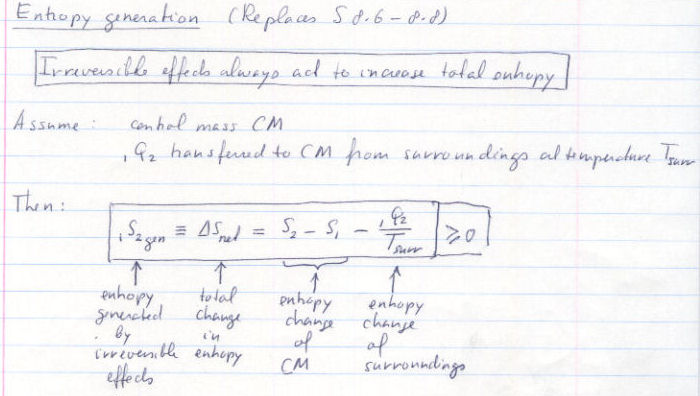 Entropy generation (Replaces S 8.6 - 8.8)
Irreversible effects always act to increase total entropy
Assume : control mass CM
, ₁Q₂ transferred to CM from surroundings at temperature Tsurr
Then :
₁S₂gen ≡ ΔSnet = S₂ - S₁ - ₁Q₂/Tsurr ≥ 0
entropy generated by irreversible effects
total change in entropy
entropy change of CM
entropy change of surroundings